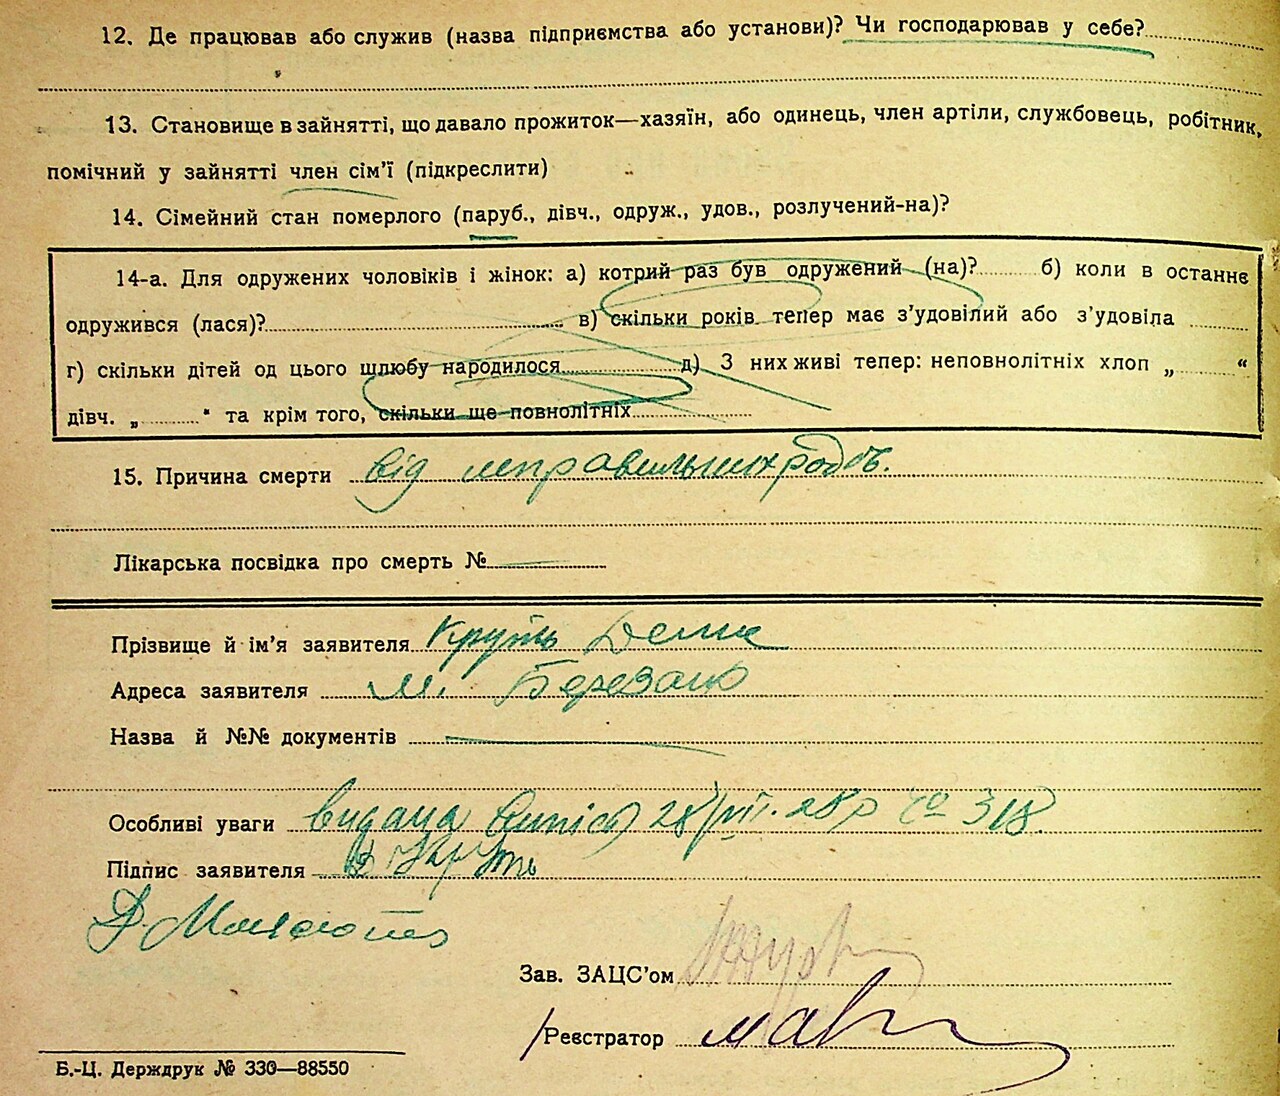 12. Де працював або служив (назва підприємства або установи)? Чи господарював у себе?
13. Становище в зайнятті, що давало прожиток—хазяїн, або одинець, член артіли, службовець, робітник,
помічний у зайнятті член сім'ї (підкреслити)
14. Сімейний стан померлого (паруб., дівч., одруж., удов., розлучений-на)?
14-а. Для одружених чоловіків і жінок: а) котрий раз був одружений (на)? б) коли в останнє
одружився (лася)? в) скільки років тепер має з'удовілий або з'удовіла
г) скільки дітей од цього шлюбу народилося д) З них живі тепер: неповнолітніх хлоп „ “
дівч. „ “ та крім того, скільки ще повнолітніх
15. Причина смерти від неправильних родов.
Лікарська посвідка про смерть №
Прізвище й ім'я заявителя Круть
Адреса заявителя м. Березань
Назва й №№ документів
Особливі уваги видана 28/VII. 28р 318.
Підпис заявителя Круть
Зав. ЗАЦС'ом
Реєстратор
Б.-Ц. Держдрук № 330—88550